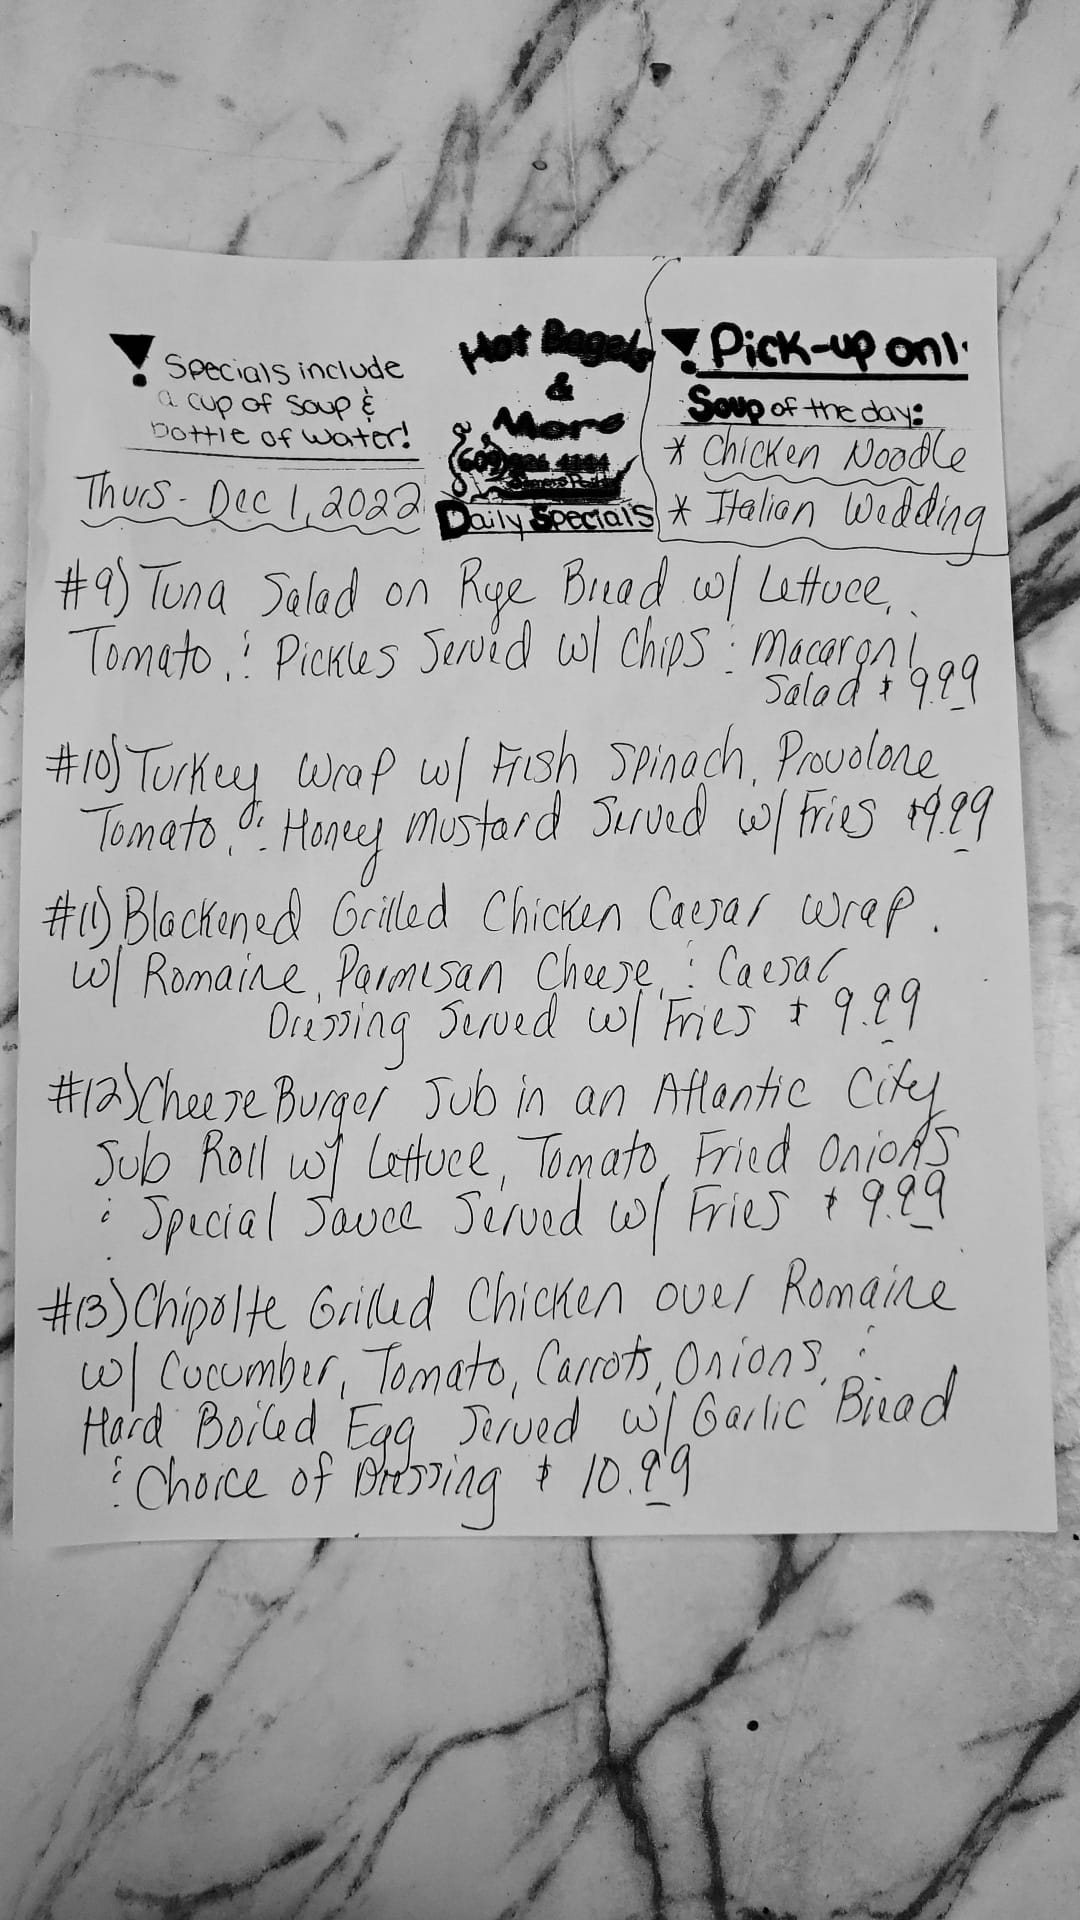 Specials include
a cup of soup &
bottle of water!
Thurs - Dec 1, 2022
Hot Bagels
&
More
(609)
Daily Specials
Pick-up onl
Soup of the day:
* Chicken Noodle
* Italian Wedding
#9) Tuna Salad on Rye Bread w/ Lettuce,
Tomato, & Pickles Served w/ Chips & Macaroni
Salad $9.99
#10) Turkey Wrap w/ Fresh Spinach, Provolone
Tomato, & Honey Mustard Served w/ Fries $9.99
#11) Blackened Grilled Chicken Caesar Wrap
w/ Romaine, Parmesan Cheese, & Caesar
Dressing Served w/ Fries $9.99
#12) Cheese Burger Sub in an Atlantic City
Sub Roll w/ Lettuce, Tomato, Fried Onions
& Special Sauce Served w/ Fries $9.99
#13) Chipolte Grilled Chicken over Romaine
w/ Cucumber, Tomato, Carrots, Onions, &
Hard Boiled Egg Served w/ Garlic Bread
& Choice of Dressing $10.99